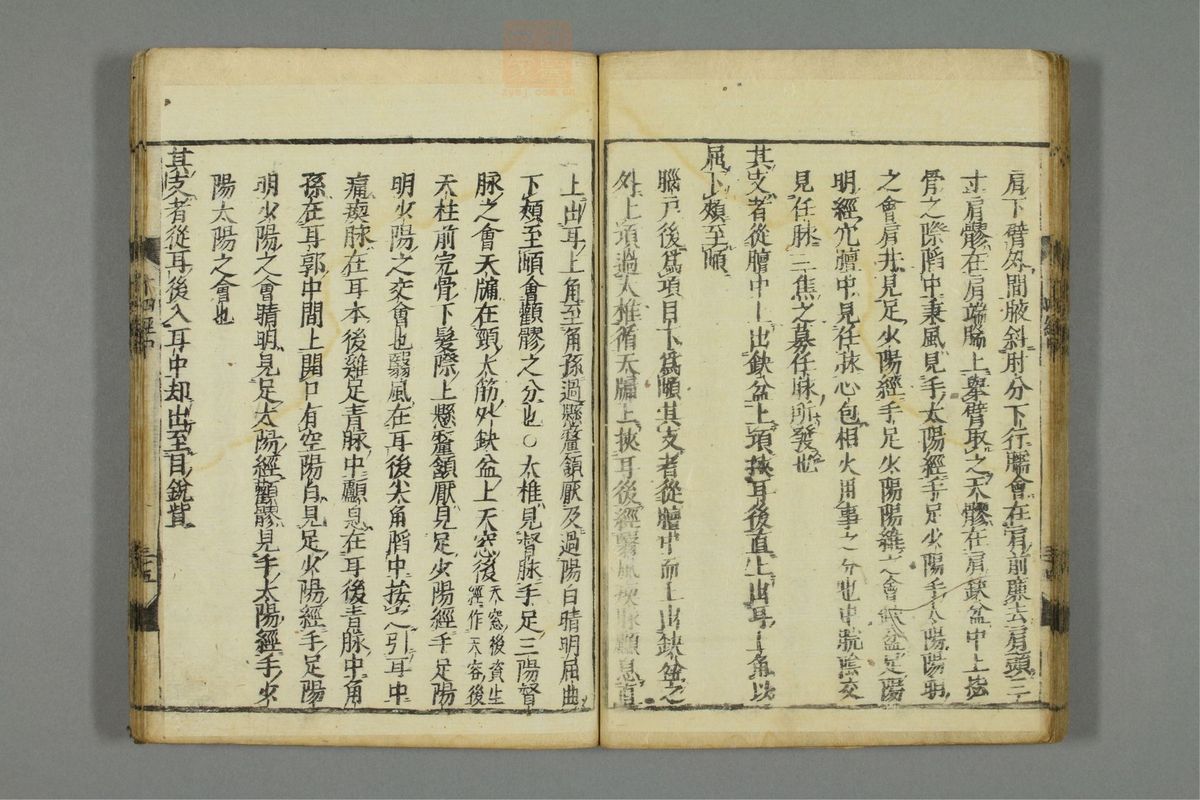 肩下臂外間腋斜肘分下行臑會在肩前廉去肩頭三
寸肩髎在肩端臑上舉臂取之天髎在肩缺盆中上毖
骨之際陷中秉風見手太陽經手足少陽手太陽陽明
之會肩井見足少陽經手足少陽陽維之會缺盆足陽
明經穴膻中見任脉心包相火用事之分也中脘陰交
見任脉三焦之募任脉所發也
其支者從膻中上出缺盆上項挾耳後直上出耳上角以
屈下頰至䪼
腦戶後為項目下為䪼其支者從膻中而上出缺盆之
外上項過大椎循天牖上挾耳後經翳風瘈脉顱息直
上出耳上角至角孫過懸釐頷厭及過陽白睛明屈曲
下頰至䪼會顴髎之分也○大椎見督脉手足三陽督
脉之會天牖在頸大筋外缺盆上天窓後天窓後資生經作天容後
天柱前完骨下髮際上懸釐頷厭見足少陽經手足陽
明少陽之交會也翳風在耳後尖角陷中按之引耳中
痛瘈脉在耳本後雞足青脉中顱息在耳後青脉中角
孫在耳郭中間上開口有空陽白見足少陽經手足陽
明少陽之會睛明見足太陽經顴髎見手太陽經手少
陽太陽之會也
其支者從耳後入耳中却出至目銳眥
十四經中
三十五